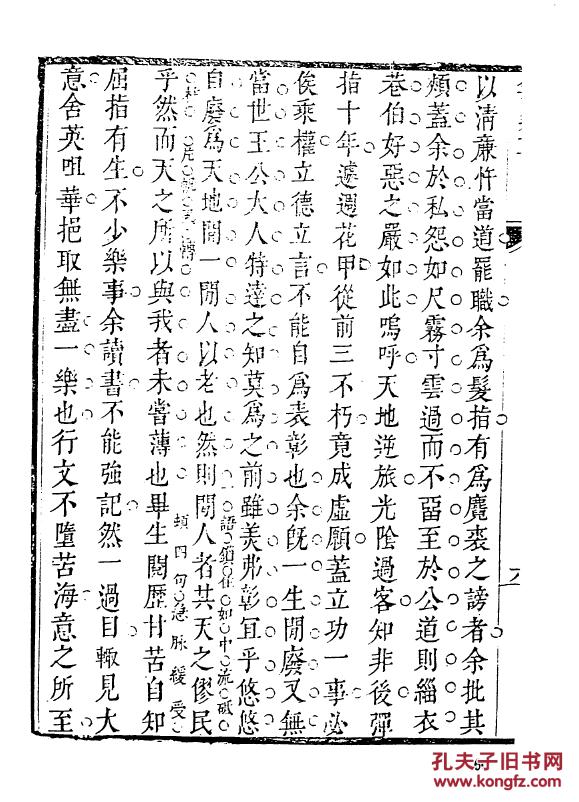 以清廉忤當道罷職余爲髮指有爲麑裘之謗者余批其
頰蓋余於私怨如尺霧寸雲過而不畱至於公道則緇衣
巷伯好惡之嚴如此嗚呼天地逆旅光陰過客知非後彈
指十年遽週花甲從前三不朽竟成虛願蓋立功一事必
俟乘權立德立言不能自爲表彰也余旣一生閒廢又無
當世王公大人特達之知莫爲之前雖美弗彰宜乎悠悠
自廢爲天地間一閒人以老也然則閒人者其天之僇民
一語鎖住如中流砥柱
乎然而天之所以與我者未嘗薄也畢生閱歷甘苦自知
頓四句急脉緩受
屈指有生不少樂事余讀書不能強記然一過目輙見大
意含英咀華挹取無盡一樂也行文不墮苦海意之所至
孔夫子旧书网
kongfz.com